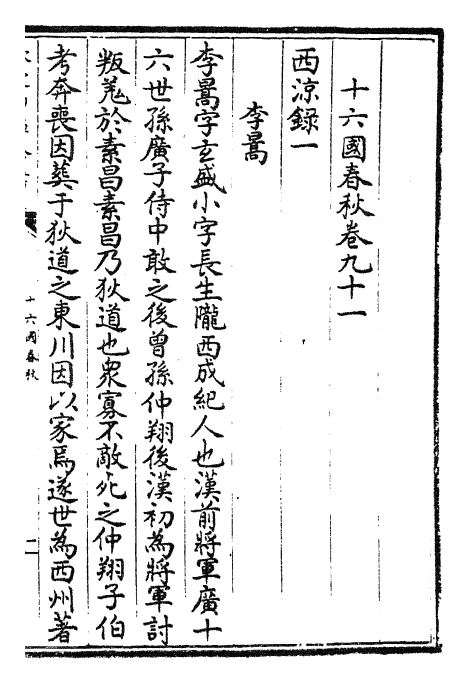 十六國春秋卷九十一
西涼録一
李暠
李暠字玄盛小字長生隴西成紀人也漢前將軍廣十
六世孫廣子侍中敢之後曾孫仲翔後漢初為將軍討
叛羌於素昌素昌乃狄道也衆寡不敵死之仲翔子伯
考奔喪因葬于狄道之東川因以家焉遂世為西州著
十六國春秋